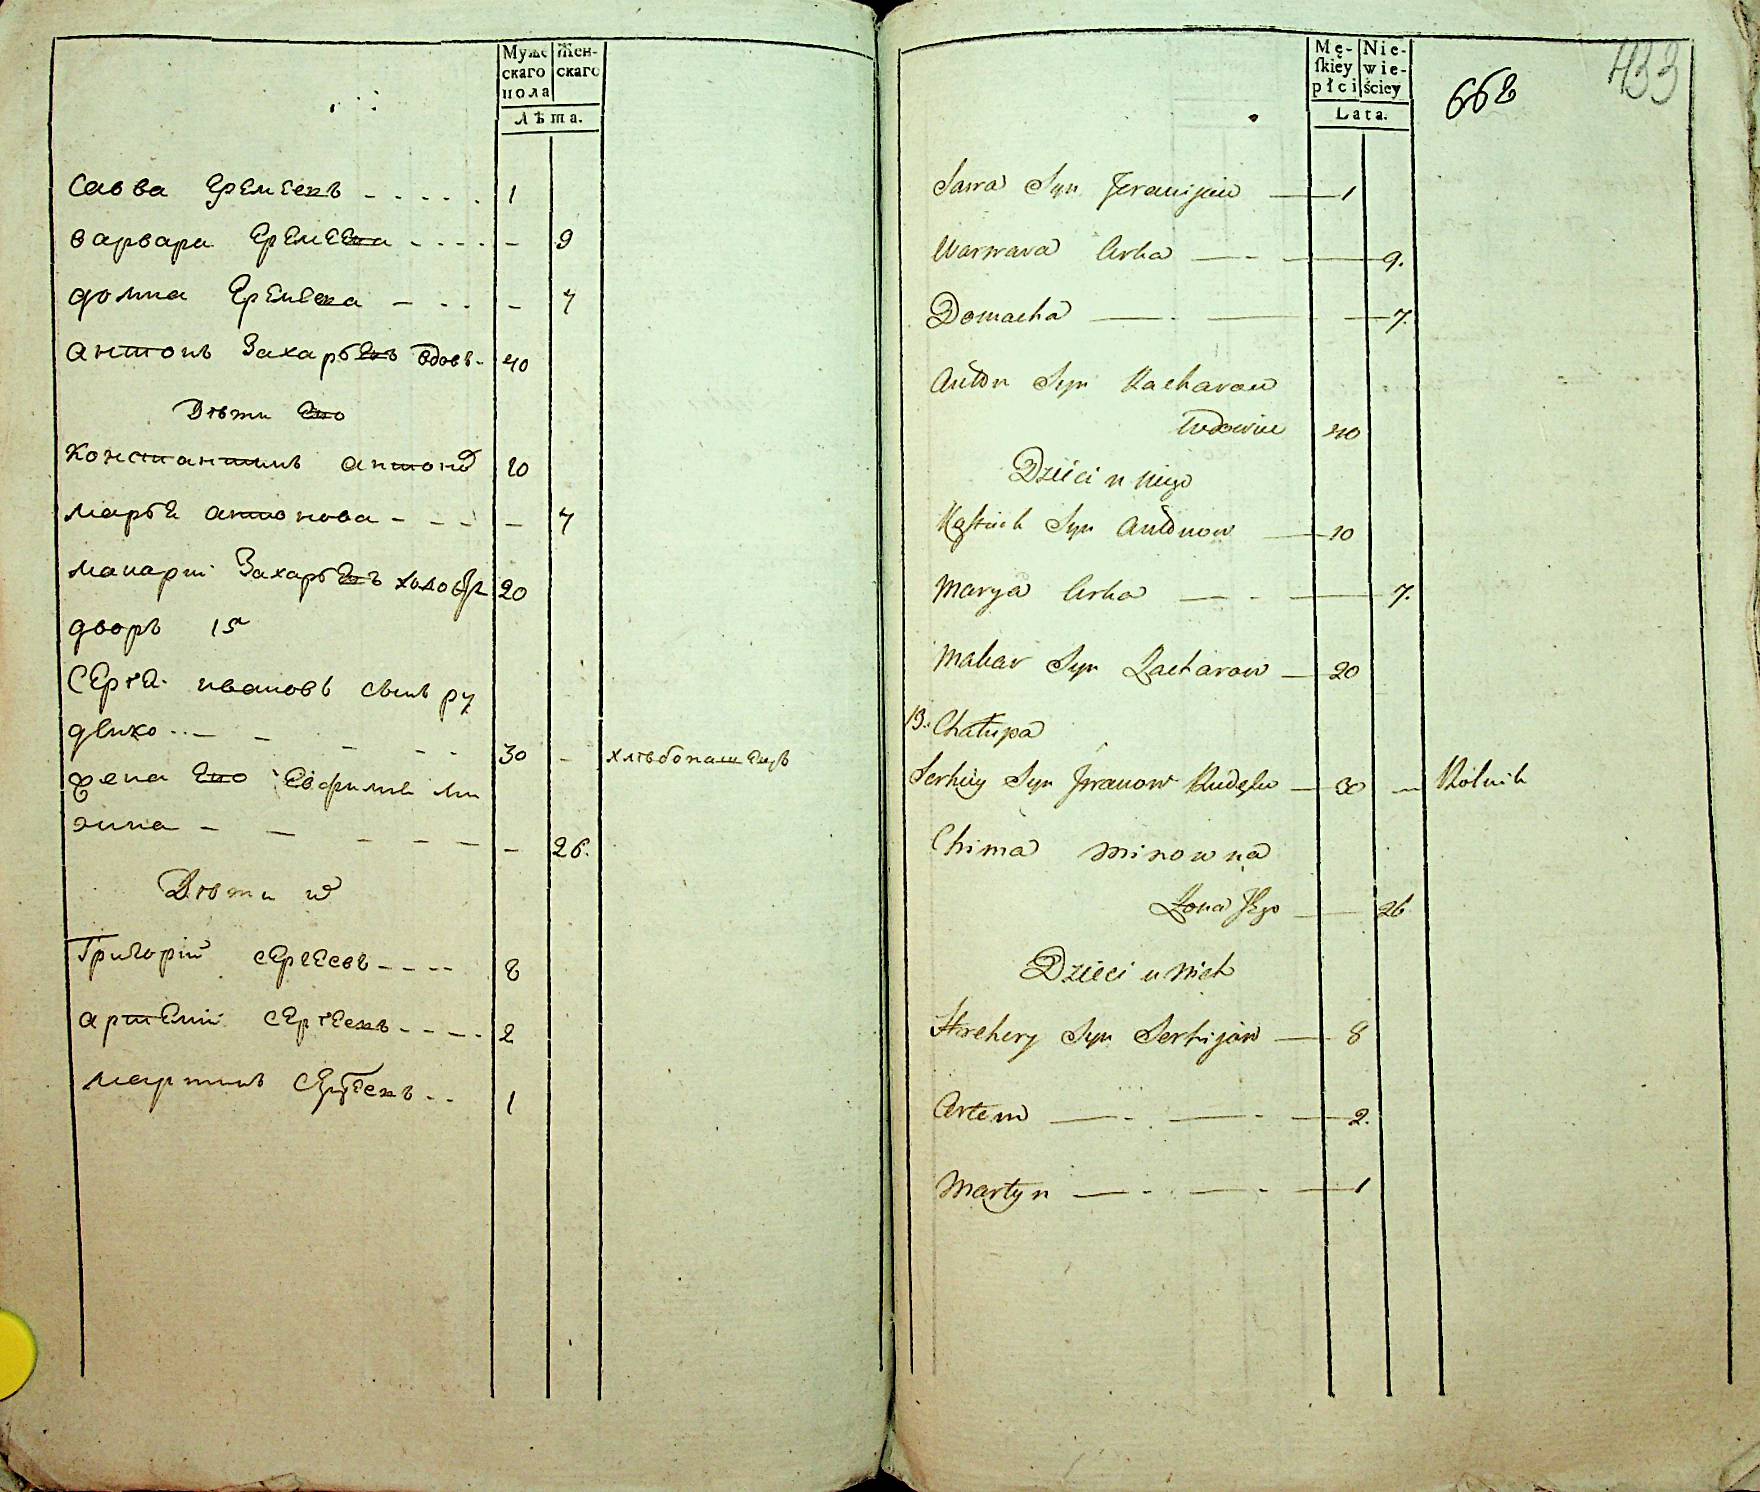 Муже
скаго
пола
Жен-
скаго
Лѣта.
Савва Еремеевъ - - - - - 1
Варвара Еремеева - - - - - 9
домна Еремеева - - - - 7
антонъ Захарьевъ вдовъ - 40
Дѣти Его
Константинъ антоно 10
марья антонова - - - - 7
макарій Захарьевъ 20
дворъ 15
Сергей ивановъ сынъ ру
дяко - - - - - 30 - хлѣбопашецъ
жена Его Ефимия ми
нина - - - - - - - 26.
Дѣти их
Григорій сергеевъ - - - - 8
артемій сергеевъ - - - - 2
мартинъ сергеевъ - - 1
Mę-
skiey
płci
Nie-
wie-
ściey
Lata.
662
433
Sawa Syn Jeremijew — 1
Warwara Curka — - — 9.
Domacha — - — — 7.
Anton Syn Zacharow
Wdowiec 40
Dzieci u niego
Kostiuk Syn Antonow — 10
Marya Curka — - — 7.
Makar Syn Zacharow — 20
15. Chałupa
Serhiy Syn Jwanow Rudęko — 30 — Rolnik
Chima Minowna
Żona Jego — 26
Dzieci u nich
Hrehory Syn Serhijow — 8
Artem — - — - — 2.
Martyn — - — - — 1